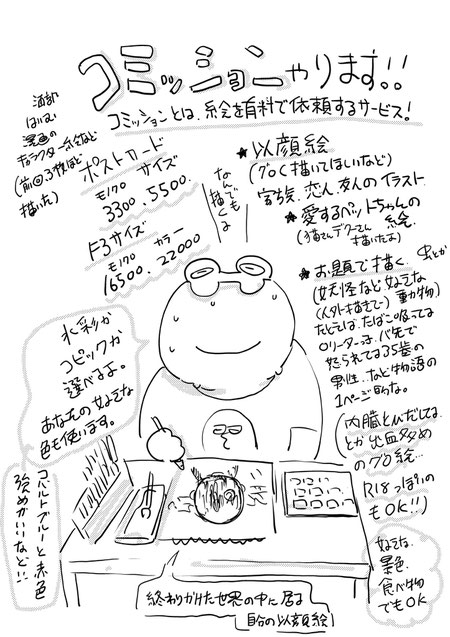 コミッションやります!!
コミッションとは、絵を有料で依頼するサービス!
キャラクター絵など
(前回3枚ほど
描いた)
ポストカード
サイズ
モノクロ
3300、5500.
F3サイズ
モノクロ カラー
16500、22000
なんでも
描くよ
★似顔絵
(グロく描いてほしいなど)
家族、恋人、友人のイラスト
★愛するペットちゃんの
絵.
★お題で描く
虫とか
(妖怪など好きな
動物)
たとえば、たばこ吸ってる
ロリータっ子、バ先で
怒られてる35歳の
男性、など物語の
1ページ的な。
(内臓とびだしてる
とか出血多め
のグロ絵…
R18っぽいの
もOK!!)
水彩か
コピックか
選べるよ。
あなたの好きな
色も使います。
コバルトブルーと赤色
強めがいいなど!!
好きな
景色、
食べ物
でもOK
終わりかけた世界の中に居る
自分の似顔絵